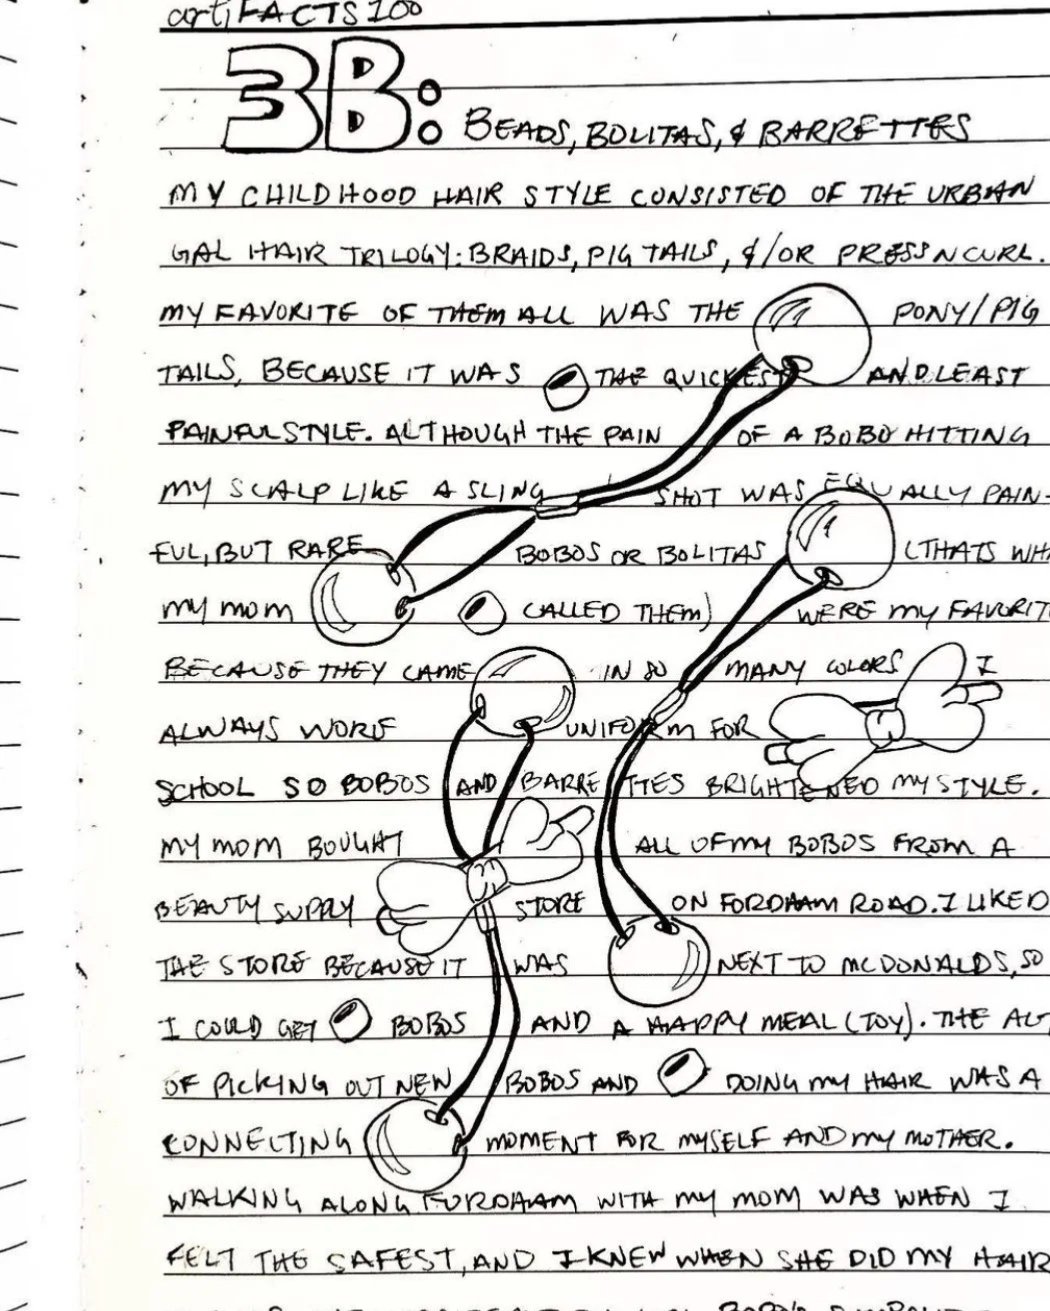 artiFACTS 100
3B: BEADS, BOLITAS, & BARRETTES
MY CHILDHOOD HAIR STYLE CONSISTED OF THE URBAN
GAL HAIR TRILOGY: BRAIDS, PIG TAILS, &/OR PRESS N CURL.
MY FAVORITE OF THEM ALL WAS THE PONY/PIG
TAILS, BECAUSE IT WAS THE QUICKEST AND LEAST
PAINFUL STYLE. ALTHOUGH THE PAIN OF A BOBO HITTING
MY SCALP LIKE A SLING SHOT WAS EQUALLY PAIN-
FUL, BUT RARE BOBOS OR BOLITAS (THATS WHA
MY MOM CALLED THEM) WERE MY FAVORIT
BECAUSE THEY CAME IN SO MANY COLORS I
ALWAYS WORE UNIFORM FOR
SCHOOL SO BOBOS AND BARRETTES BRIGHTENED MY STYLE.
MY MOM BOUGHT ALL OF MY BOBOS FROM A
BEAUTY SUPPLY STORE ON FORDHAM ROAD. I LIKED
THE STORE BECAUSE IT WAS NEXT TO MCDONALDS, SO
I COULD GET BOBOS AND A HAPPY MEAL (TOY). THE ACT
OF PICKING OUT NEW BOBOS AND DOING MY HAIR WAS A
CONNECTING MOMENT FOR MYSELF AND MY MOTHER.
WALKING ALONG FORDHAM WITH MY MOM WAS WHEN I
FELT THE SAFEST, AND I KNEW WHEN SHE DID MY HAIR